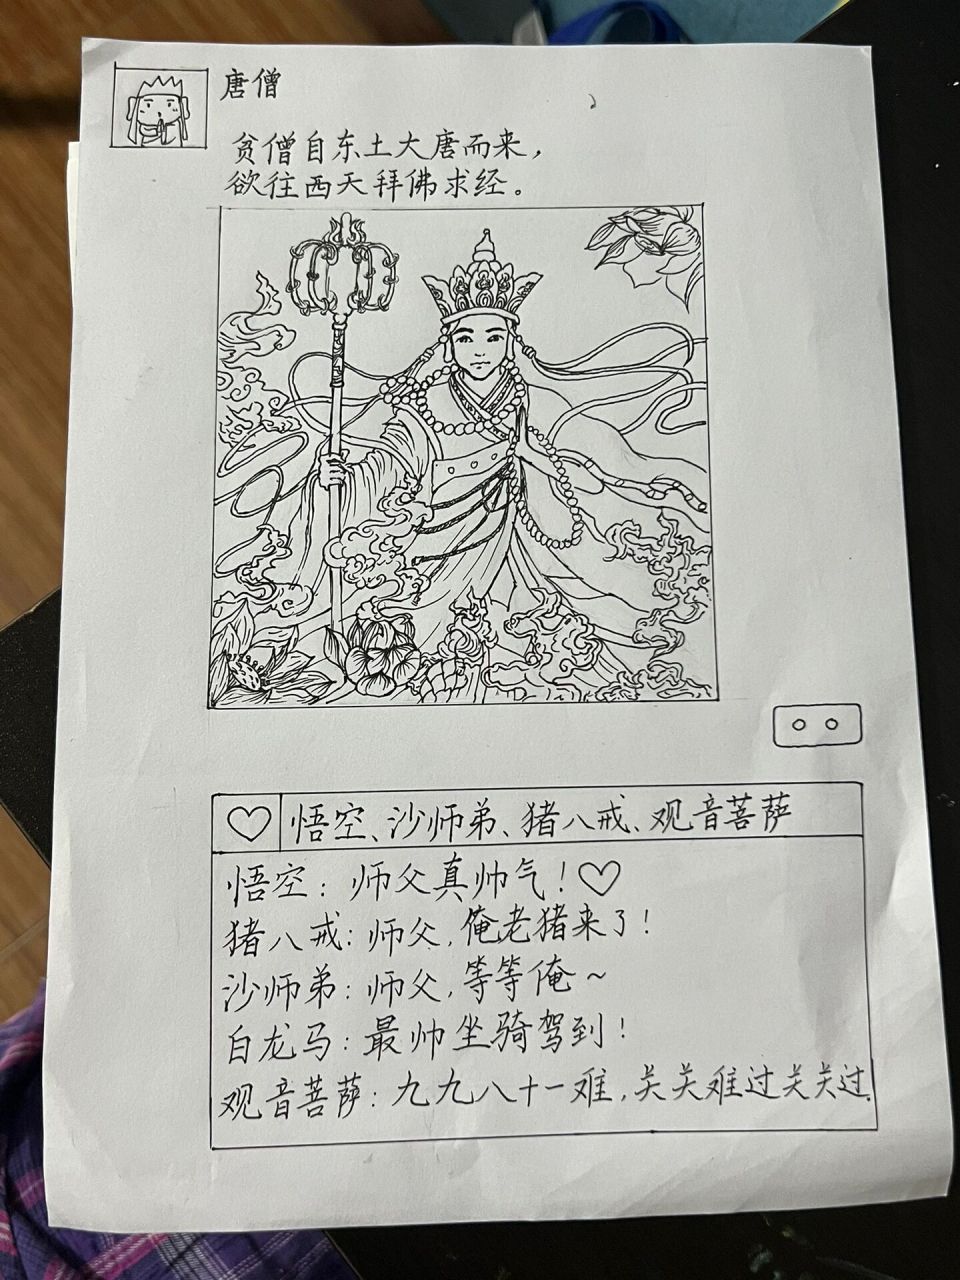 唐僧
贫僧自东土大唐而来，
欲往西天拜佛求经。
悟空、沙师弟、猪八戒、观音菩萨
悟空：师父真帅气！
猪八戒：师父，俺老猪来了！
沙师弟：师父，等等俺~
白龙马：最帅坐骑驾到！
观音菩萨：九九八十一难，关关难过关关过.